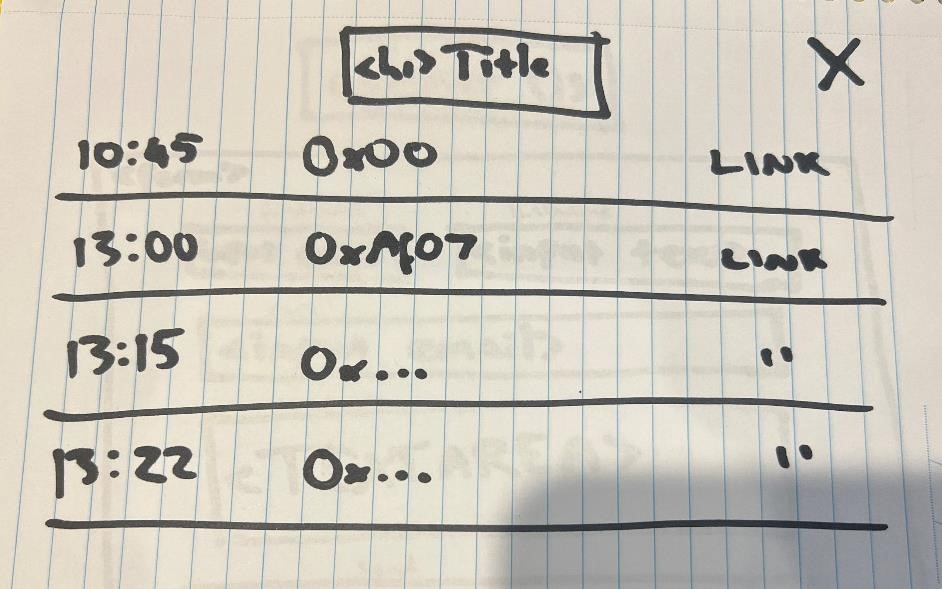 <h1> Title X
10:45 0x00 LINK
13:00 0xAf07 LINK
13:15 0x... "
13:22 0x... "